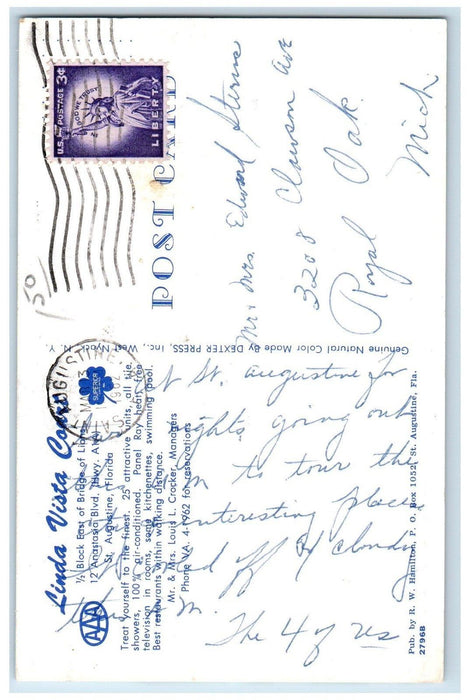 Linda Vista Court
½ Block East of Bridge of Lions
12 Anastasia Blvd. (Hwy. A1A)
St. Augustine, Florida
AAA
SUPERIOR
Treat yourself to the finest. 25 attractive units, all tile
showers, 100% air-conditioned. Panel Ray heat, free
television in rooms, some kitchenettes, swimming pool.
Best restaurants within walking distance.
Mr. & Mrs. Louis L. Crocker, Managers
Phone VA. 4-1962 for reservations
St. Augustine for
going out
to tour the
interesting places
and off
The 4 of us
Pub. by R. W. Hamilton, P. O. Box 1052, St. Augustine, Fla.
2796B
Genuine Natural Color Made By DEXTER PRESS, Inc., West Nyack, N. Y.
POST CARD
U.S. POSTAGE 3¢
IN GOD WE TRUST
LIBERTY
150
Mr & Mrs. Edward Sterns
3208 Clawson Ave
Royal Oak
Mich